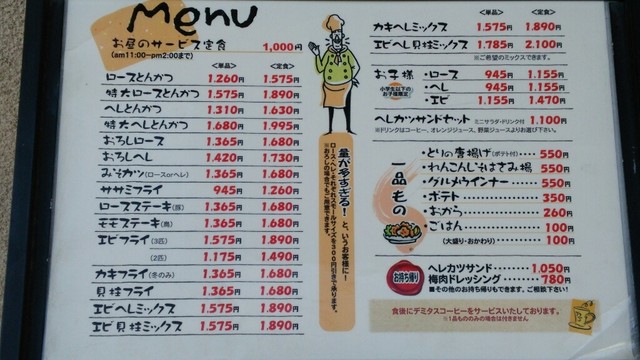 Menu
お昼のサービス定食 1,000円
(am11:00〜pm2:00まで)
<単品> <定食>
ロースとんかつ 1.260円 1.575円
特大ロースとんかつ 1.575円 1.890円
ヘレとんかつ 1.310円 1.630円
特大ヘレとんかつ 1.680円 1.995円
おろしロース 1.365円 1.680円
おろしヘレ 1.420円 1.730円
みそカツ(ロースorヘレ) 1.365円 1.680円
ササミフライ 945円 1.260円
ロースステーキ(豚) 1.365円 1.680円
モモステーキ(鳥) 1.365円 1.680円
エビフライ(3匹) 1.575円 1.890円
(2匹) 1.175円 1.490円
カキフライ(冬のみ) 1.365円 1.680円
貝柱フライ 1.365円 1.680円
エビヘレミックス 1.575円 1.890円
エビ貝柱ミックス 1.575円 1.890円
量が多すぎる!と、いうお客様に!
ロース・ヘレそれぞれスモールサイズを300円引きで承ります。
※おろしの場合でもご用意できます。
<単品> <定食>
カキヘレミックス 1.575円 1.890円
エビヘレ貝柱ミックス 1.785円 2.100円
※ご希望のミックスできます。
お子様 ・ロース 945円 1.155円
小学生以下のお子様限定 ・ヘレ 945円 1.155円
・エビ 1.155円 1.470円
ヘレカツサンドセット ミニサラダ・ドリンク付 1.100円
※ドリンクはコーヒー、オレンジジュース、野菜ジュースよりお選び下さい。
一品もの
・とりの唐揚げ(ポテト付) 550円
・れんこんはさみ揚 550円
・グルメウインナー 550円
・ポテト 350円
・おから 260円
・ごはん 100円
(大盛り・おかわり) 100円
お持ち帰り
ヘレカツサンド 1.050円
梅肉ドレッシング 780円
■その他のお持ち帰りもできます。ご相談下さい!
食後にデミタスコーヒーをサービスいたしております。
※一品もののみの場合は付きません